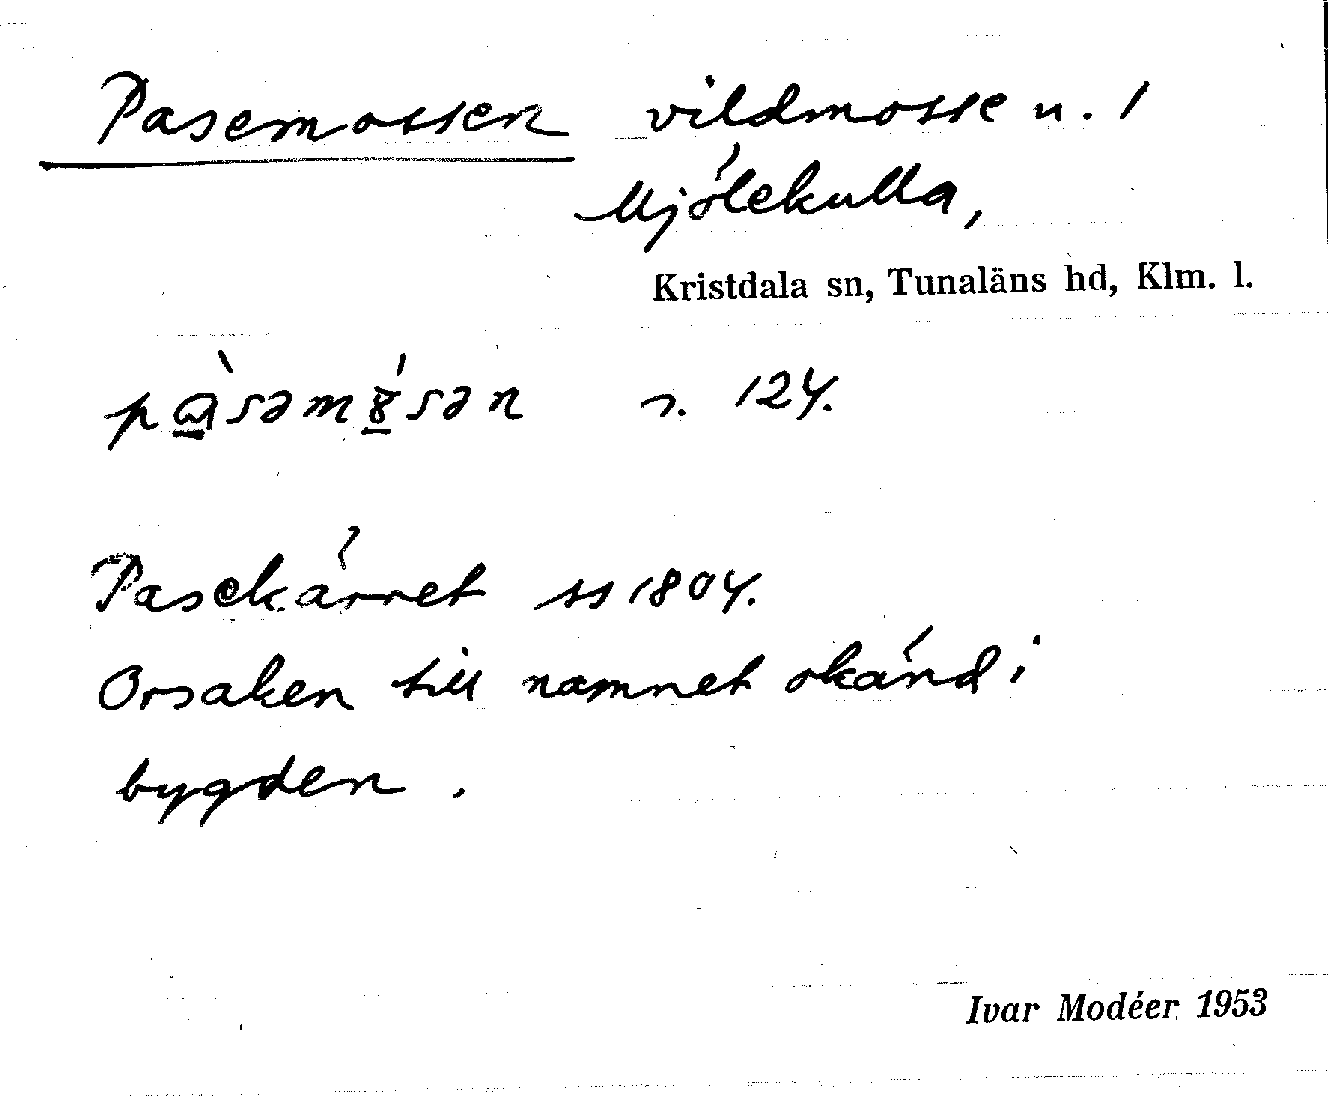 Pasemossen vildmosse u. 1
Mjölekulla,
Kristdala sn, Tunaläns hd, Klm. l.
pɑ̀səmɣ́sən n. 124.
Pasekärret ss 1804.
Orsaken till namnet okänd i
bygden.
Ivar Modéer 1953